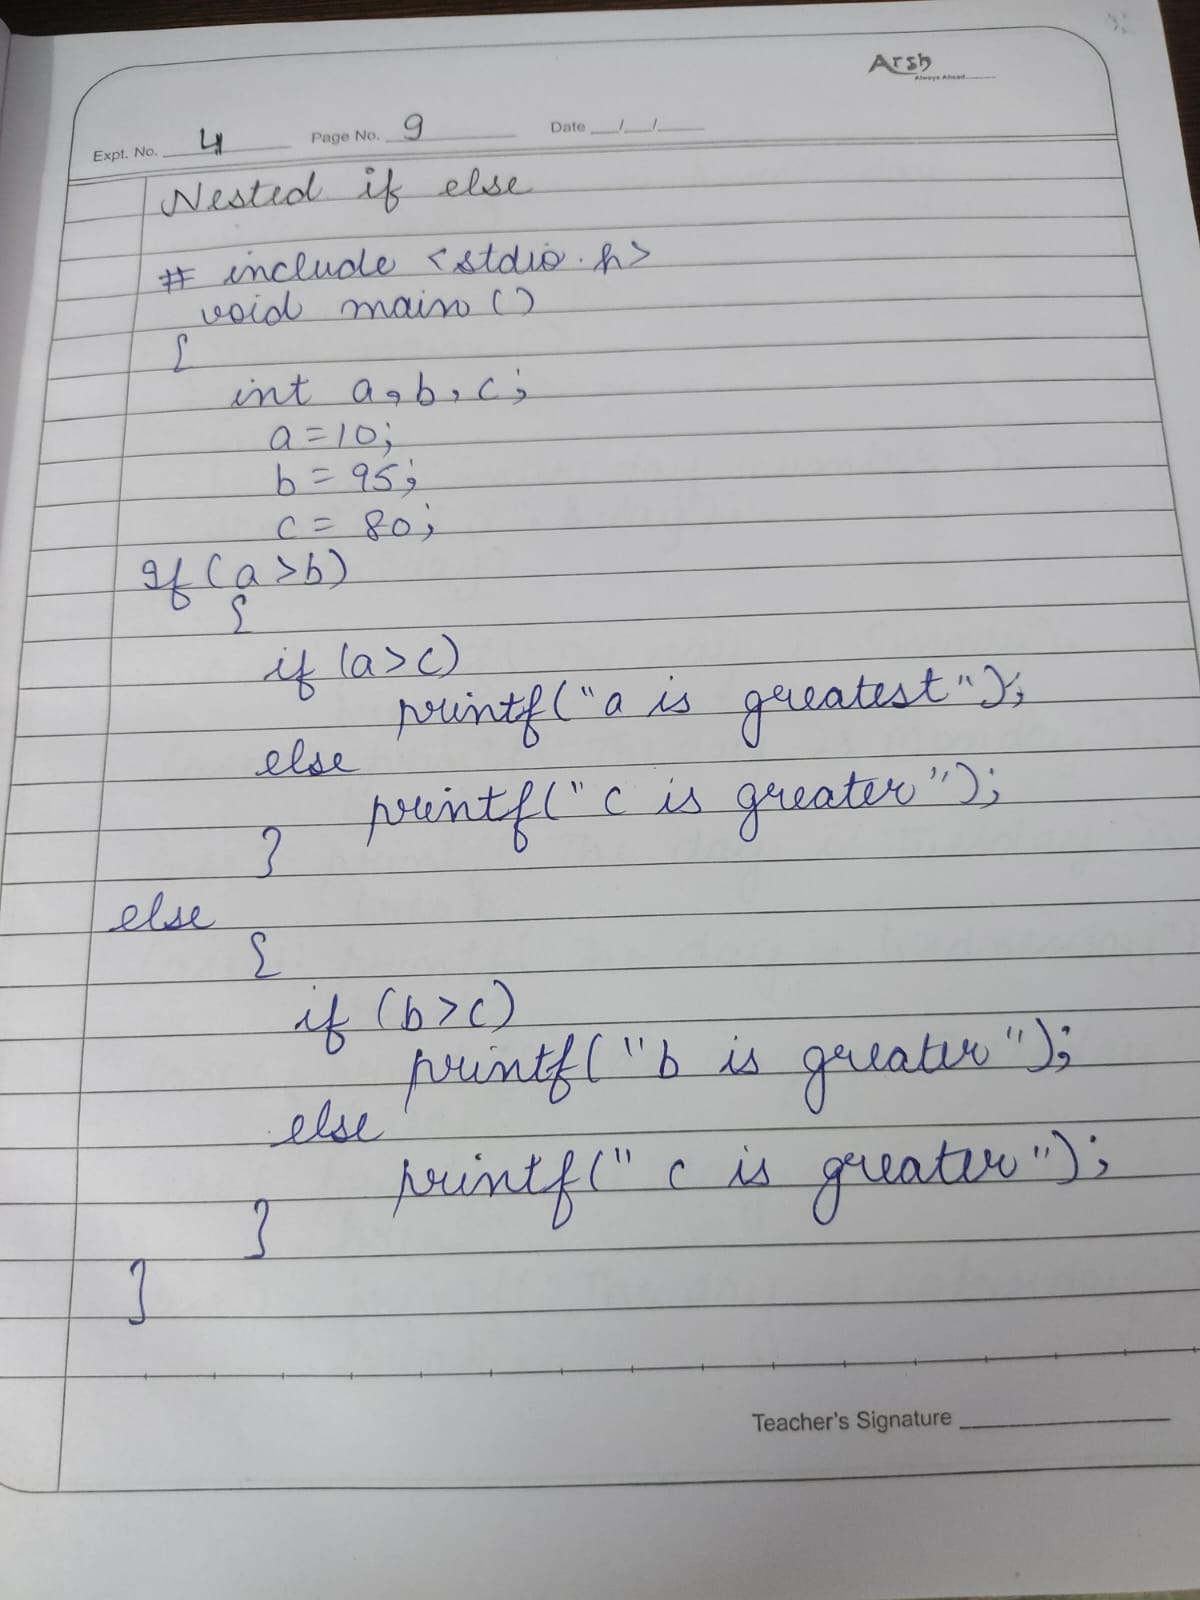 Arsh
Always Ahead
Expt. No. 4 Page No. 9 Date __/__/__
Nested if else
# include <stdio.h>
void main ()
{
int a, b, c;
a = 10;
b = 95;
c = 80;
If (a > b)
{
if (a > c)
printf("a is greatest");
else
printf("c is greater");
}
else
{
if (b > c)
printf("b is greater");
else
printf(" c is greater");
}
}
Teacher's Signature